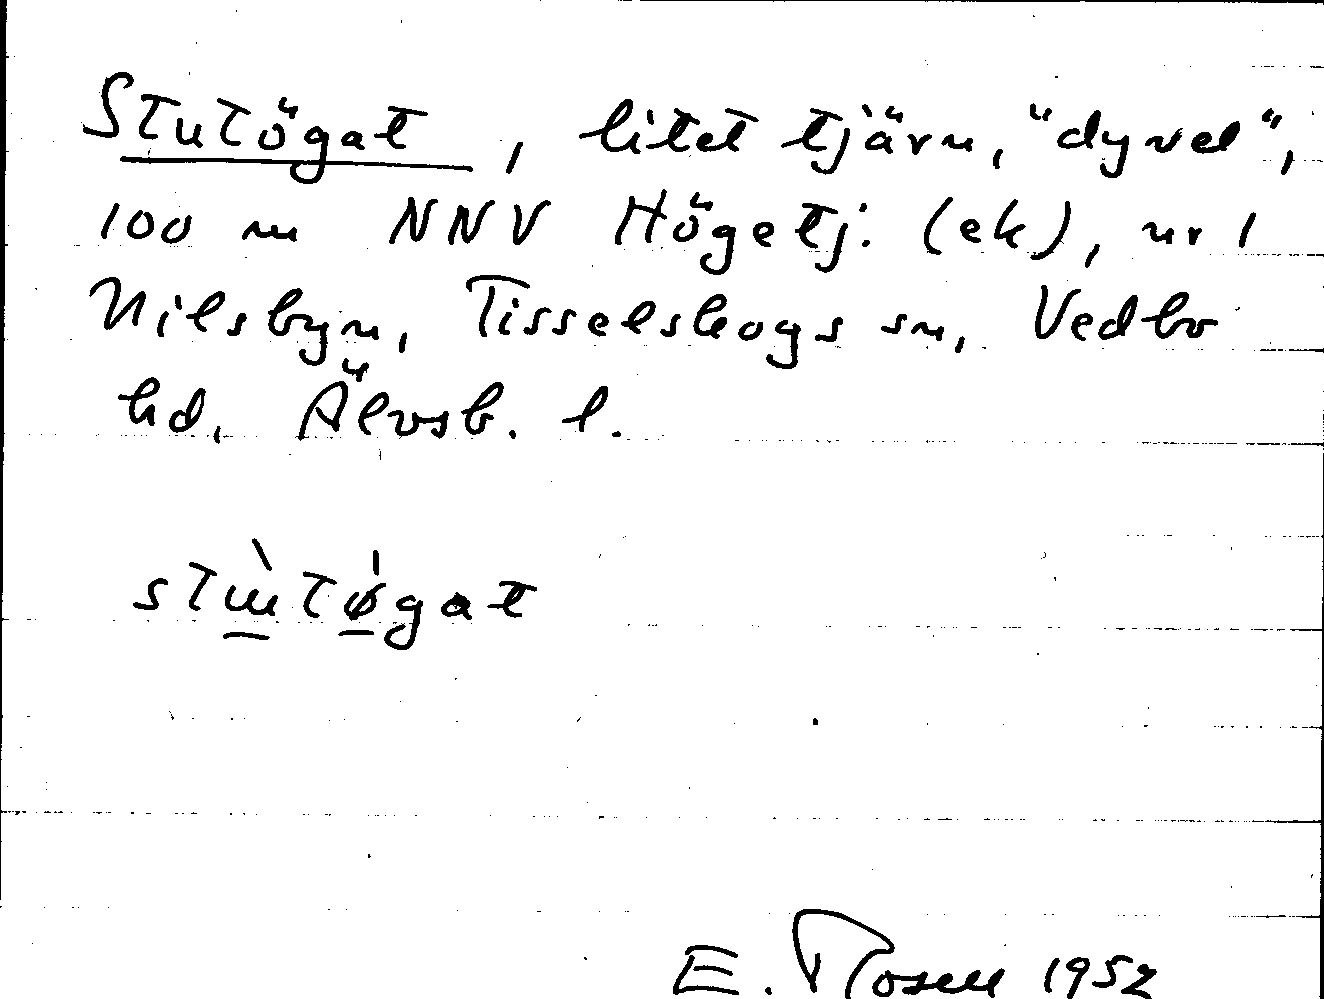 Stutögat, litet tjärn, "dyvel",
100 m NNV Högetj. (ek), nr 1
Nilsbyn, Tisselskogs sn, Vedbo
hd, Älvsb. l.
stɯ̀tǿgat
E. Rosell 1952